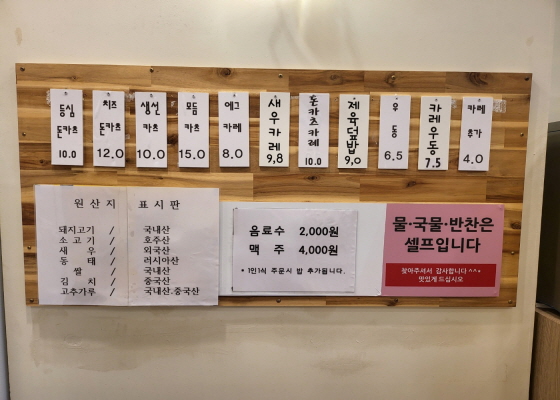 등심 돈카츠 10.0
치즈 돈카츠 12.0
생선 카츠 10.0
모듬 카츠 15.0
에그 카레 8.0
새우카레 9,8
돈카츠카레 10.0
제육덮밥 9,0
우동 6.5
카레우동 7.5
카레 추가 4.0
원산지 표시판
돼지고기 / 국내산
소고기 / 호주산
새우 / 외국산
동태 / 러시아산
쌀 / 국내산
김치 / 중국산
고추가루 / 국내산.중국산
음료수 2,000원
맥주 4,000원
* 1인1식 주문시 밥 추가됩니다.
물·국물·반찬은
셀프입니다
찾아주셔서 감사합니다^^*
맛있게드십시오